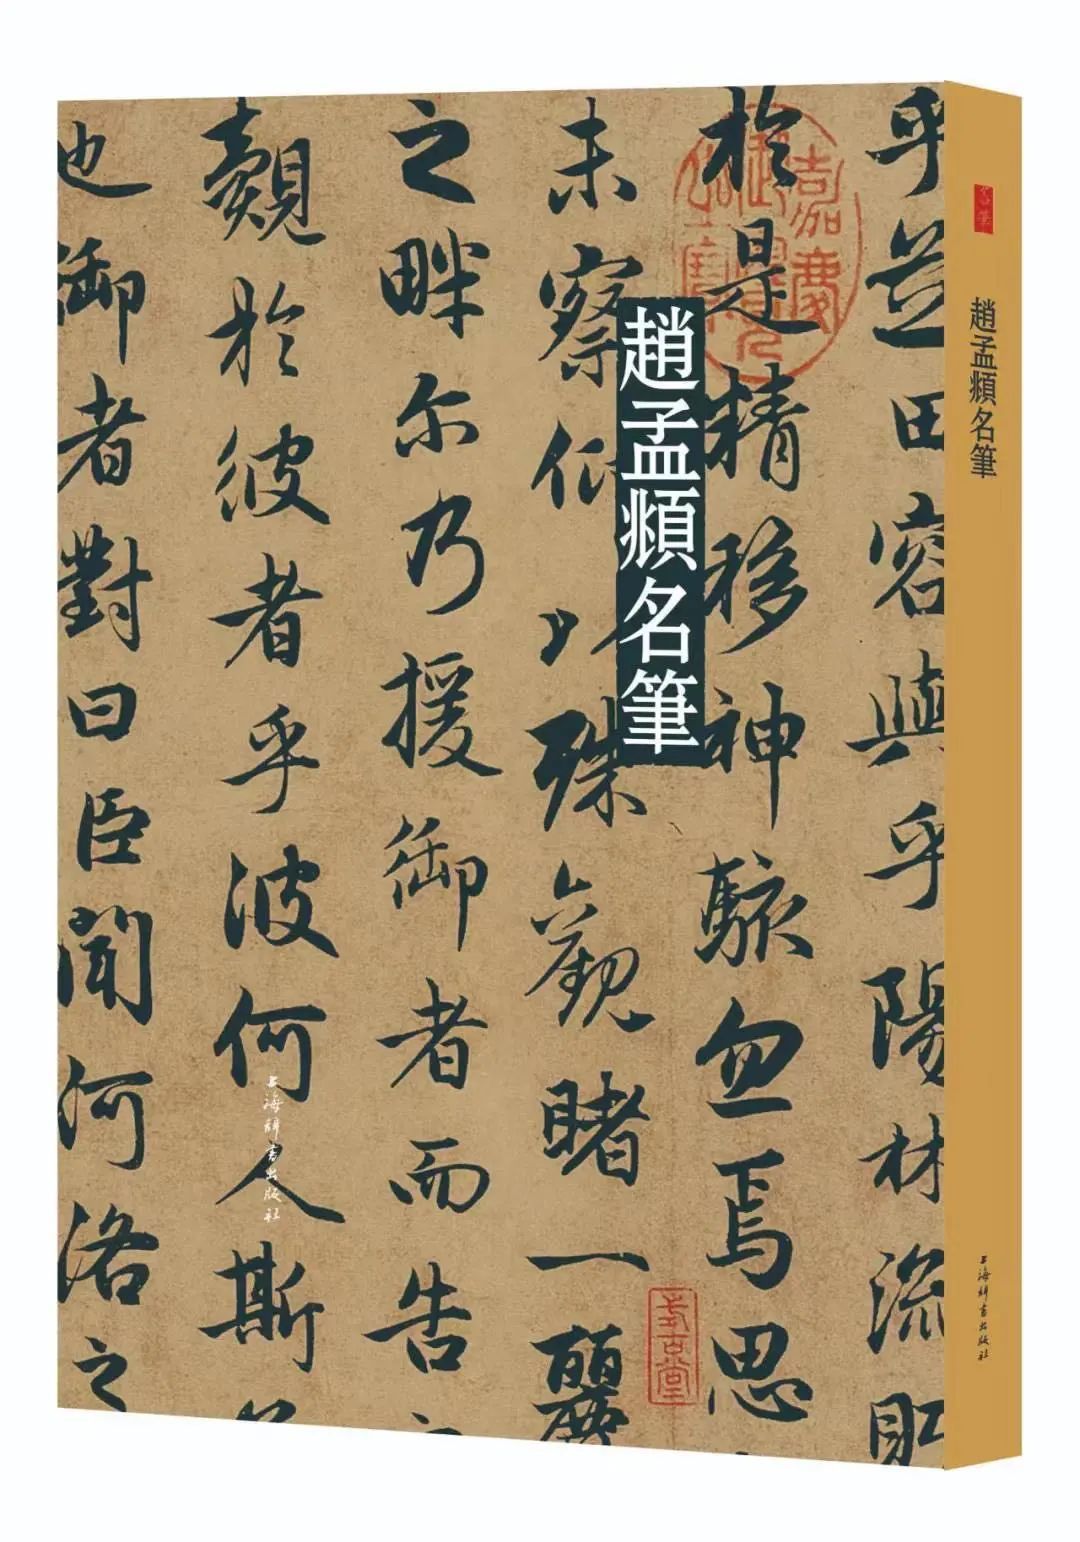 乎蘅田容與乎陽林流眄
於是精移神駭忽焉思
未察仰以殊觀睹一麗
之畔尔乃援御者而告之
覿於彼者乎彼何人斯
也御者對曰臣聞河洛之
趙孟頫名筆
上海辭書出版社
嘉慶御覽之寶
考古堂
名筆
趙孟頫名筆
上海辭書出版社